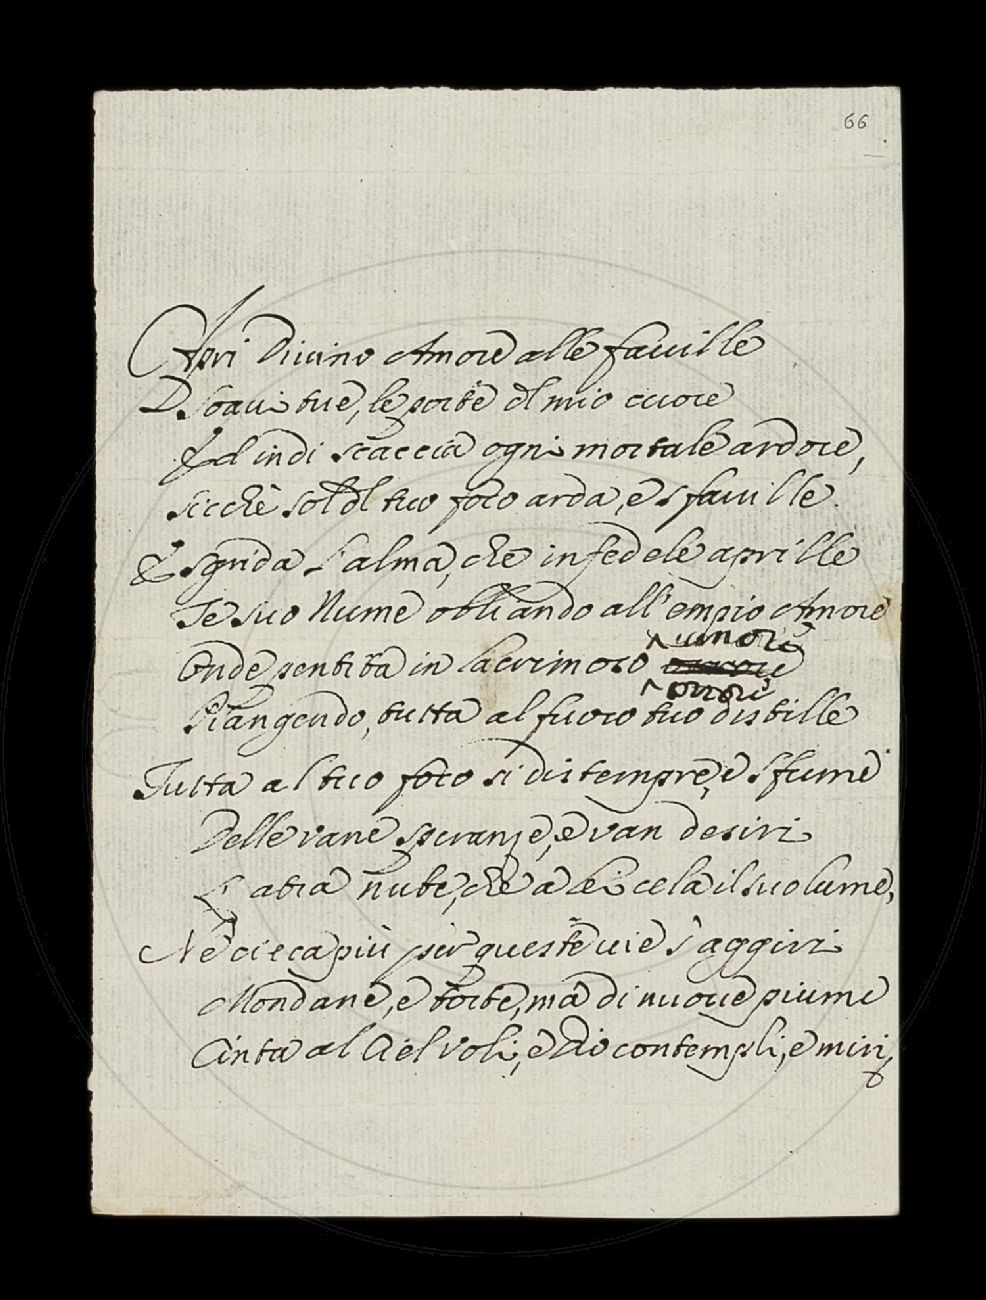 66
Apri Divino Amore alle faville
Soavi tue, le porte dl mio cuore
Ed indi scaccia ogni mortale ardore,
sicchè sol dl tuo foco arda, e sfaville.
E sgrida l'alma, che infedele aprille
Te suo Nume obliando all'empio Amore
umore
Onde pentita in lacrimoso
orrore
Piangendo, tutta al fuoco tuo distille
Tutta al tuo foco si distempre, e sfume
Delle vane speranze, e van desiri
L'atra nube, che a lei cela il suo lume,
Nè cieca più per queste vie s'aggiri
Mondane, e torte, ma di nuove piume
Cinta al Ciel voli, e Dio contempli, e miri